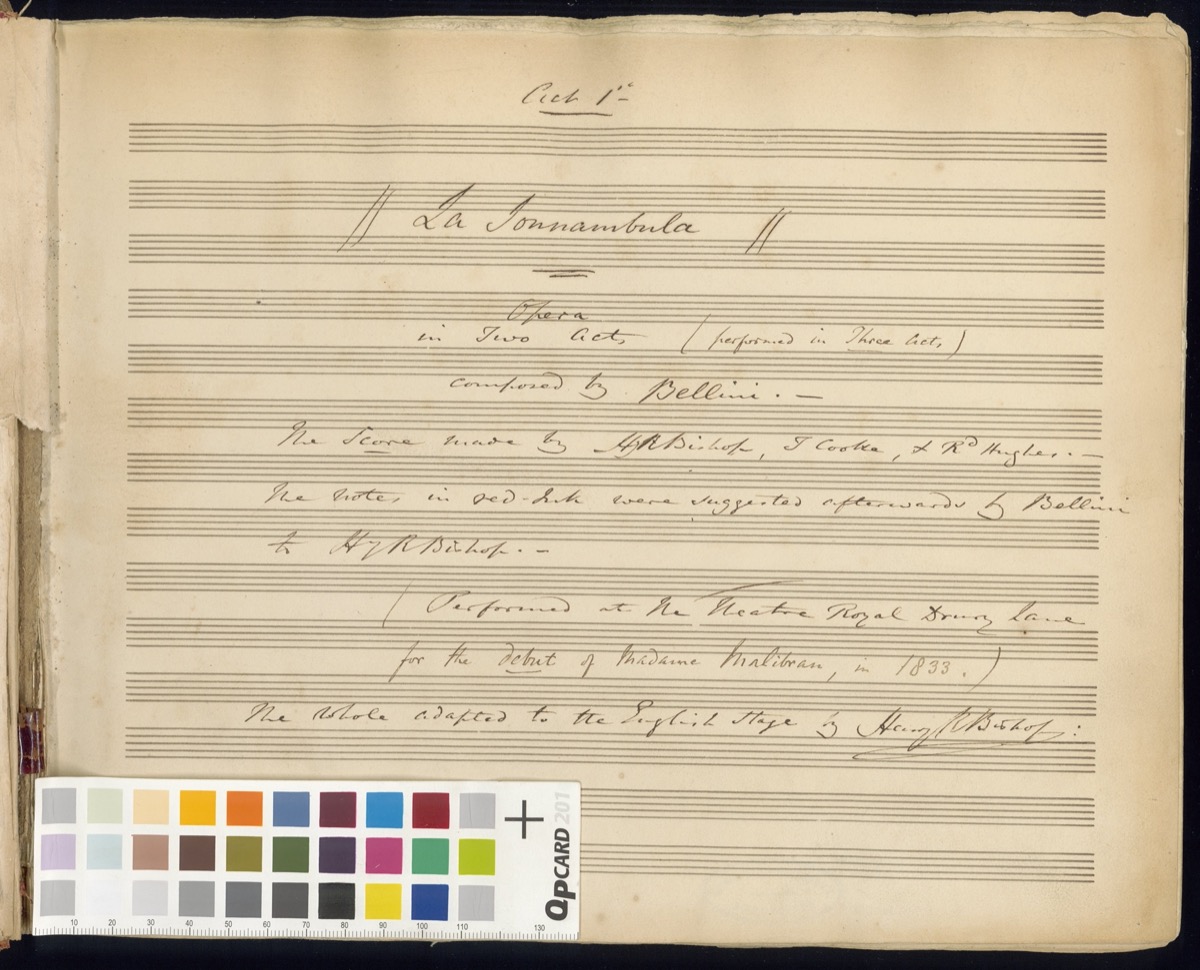 Act 1º
La Sonnambula
Opera
in Two Acts (performed in Three Acts)
composed by Bellini. —
The Score made by HyRBishop, T Cooke, & Rd Hughes. —
The Notes in red-Ink were suggested afterwards by Bellini
to HyRBishop. —
(Performed at the Theatre Royal Drury Lane
for the debut of Madame Malibran, in 1833.)
The whole adapted to the English Stage by Henry R Bishop:
10 20 30 40 50 60 70 80 90 100 110 130
QPCARD 201